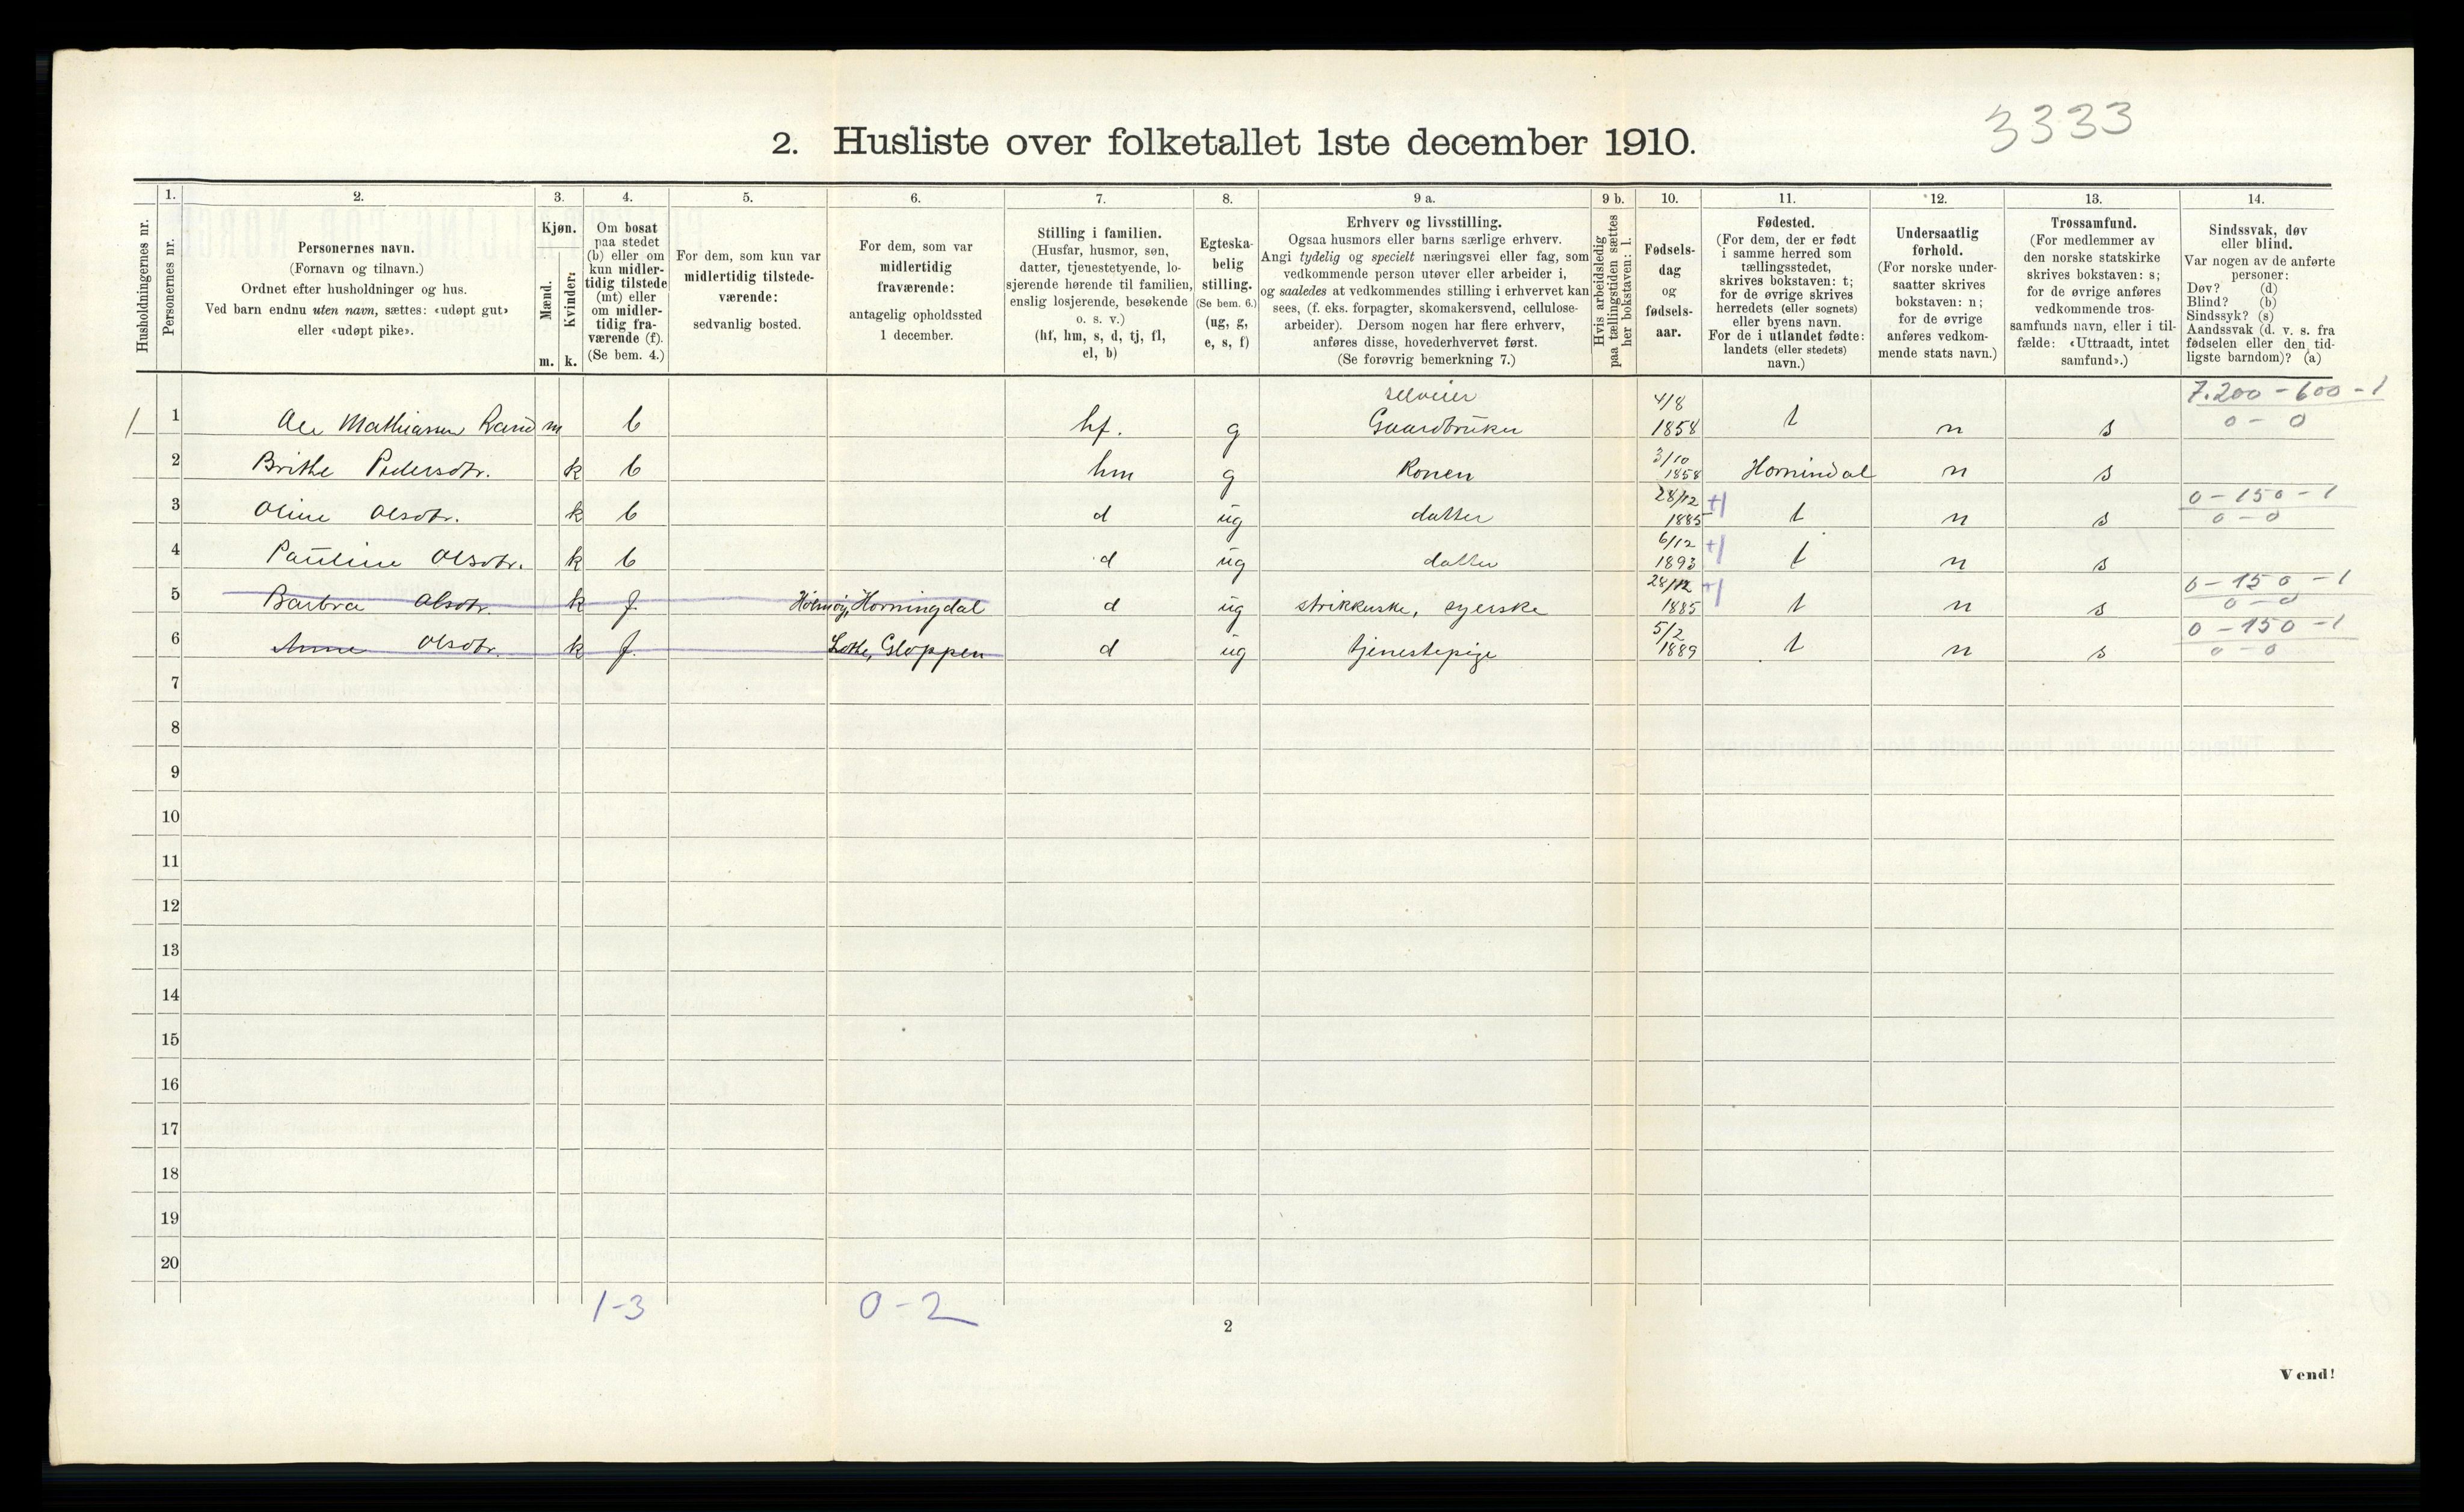 3333
2. Husliste over folketallet 1ste december 1910.
Husholdningernes nr.
1.
Personernes nr.
2.
Personernes navn.
(Fornavn og tilnavn.)
Ordnet efter husholdninger og hus.
Ved barn endnu uten navn, sættes: «udøpt gut»
eller «udøpt pike».
3.
Kjøn.
Mænd.
Kvinder.
m. k.
4.
Om bosat
paa stedet
(b) eller om
kun midler-
tidig tilstede
(mt) eller
om midler-
tidig fra-
værende (f).
(Se bem. 4.)
5.
For dem, som kun var
midlertidig tilstede-
værende:
sedvanlig bosted.
6.
For dem, som var
midlertidig
fraværende:
antagelig opholdssted
1 december.
7.
Stilling i familien.
(Husfar, husmor, søn,
datter, tjenestetyende, lo-
sjerende hørende til familien,
enslig losjerende, besøkende
o. s. v.)
(hf, hm, s, d, tj, fl,
el, b)
8.
Egteska-
belig
stilling.
(Se bem. 6.)
(ug, g,
e, s, f)
9 a.
Erhverv og livsstilling.
Ogsaa husmors eller barns særlige erhverv.
Angi tydelig og specielt næringsvei eller fag, som
vedkommende person utøver eller arbeider i,
og saaledes at vedkommendes stilling i erhvervet kan
sees, (f. eks. forpagter, skomakersvend, cellulose-
arbeider). Dersom nogen har flere erhverv,
anføres disse, hovederhvervet først.
(Se forøvrig bemerkning 7.)
9 b.
Hvis arbeidsledig
paa tællingstiden sættes
her bokstaven: l.
10.
Fødsels-
dag
og
fødsels-
aar.
11.
Fødested.
(For dem, der er født
i samme herred som
tællingsstedet,
skrives bokstaven: t;
for de øvrige skrives
herredets (eller sognets)
eller byens navn.
For de i utlandet fødte:
landets (eller stedets)
navn.)
12.
Undersaatlig
forhold.
(For norske under-
saatter skrives
bokstaven: n;
for de øvrige
anføres vedkom-
mende stats navn.)
13.
Trossamfund.
(For medlemmer av
den norske statskirke
skrives bokstaven: s;
for de øvrige anføres
vedkommende tros-
samfunds navn, eller i til-
fælde: «Uttraadt, intet
samfund».)
14.
Sindssvak, døv
eller blind.
Var nogen av de anførte
personer:
Døv? (d)
Blind? (b)
Sindssyk? (s)
Aandssvak (d. v. s. fra
fødselen eller den tid-
ligste barndom)? (a)
selveier 4/8 7.200 - 600 - 1
1 1 Ole Mathiassen m b hf. g Gaardbruker 1858 t n s 0 - 0
2 Brithe Pedersdtr. k b hm g Konen 3/10 1858 Hornindal n s
3 Oline Olsdtr. k b d ug datter 28/12 1885 t n s 0 - 150 - 1 0 - 0
4 Pauline Olsdtr. k b d ug datter 6/12 1893 t n s
5 Barbra Olsdtr. k f. Holmøy, Horningdal d ug strikkerske, syerske 28/12 1885 t n s 0 - 150 - 1 0 - 0
6 Anne Olsdtr. k f. Lothe, Gloppen d ug tjenestepige 5/2 1889 t n s 0 - 150 - 1 0 - 0
7
8
9
10
11
12
13
14
15
16
17
18
19
20
1-3 0-2
2
Vend!